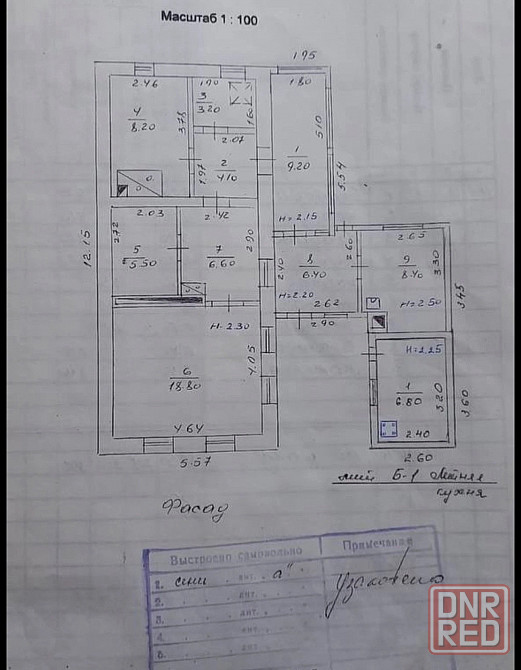 Масштаб 1 : 100
1.95
2.46
1.70
1.80
4
8.20
3
3.20
1.60
3.78
5.10
2.07
1
9.20
2
4.10
1.97
5.54
2.03
2.42
Н=2.15
2.72
12.15
5
5.50
7
6.60
2.90
2.60
2.65
2.40
8
6.40
9
8.40
3.30
Н=2.20
Н=2.50
3.45
2.62
2.90
Н-2.30
4.05
Н=2.25
6
18.80
1
6.80
3.20
3.60
4.64
2.40
5.57
2.60
лит Б-1 Летняя
кухня
Фасад
Выстроено самовольно
Примечание
1. сени лит. а"
Узаконено
2. лит.
3. лит.
4. лит.
5. лит.
DNR
RED